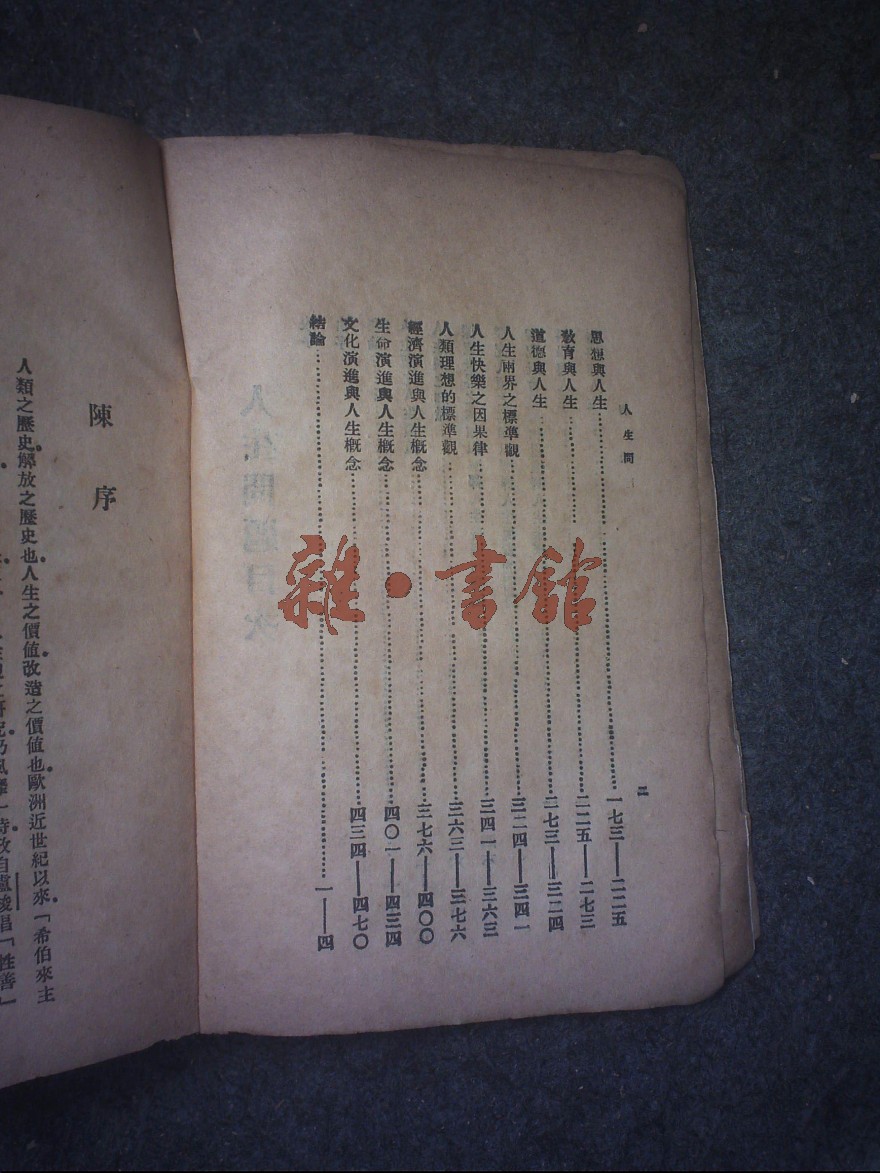 人生問
二
思想與人生……一七三——二二五
教育與人生……二二五——二七三
道德與人生……二七三——三二四
人生兩界之標準觀……三二四——三四一
人生快樂之因果律……三四一——三六三
人類理想的標準觀……三六三——三七六
經濟演進與人生概念……三七六——四〇〇
生命演進與人生概念……四〇一——四三四
文化演進與人生概念……四三四——四七〇
結論……一——四
陳序
人類之歷史解放之歷史也人生之價値改造之價値也歐洲近世紀以來「希伯來主
雜·書館